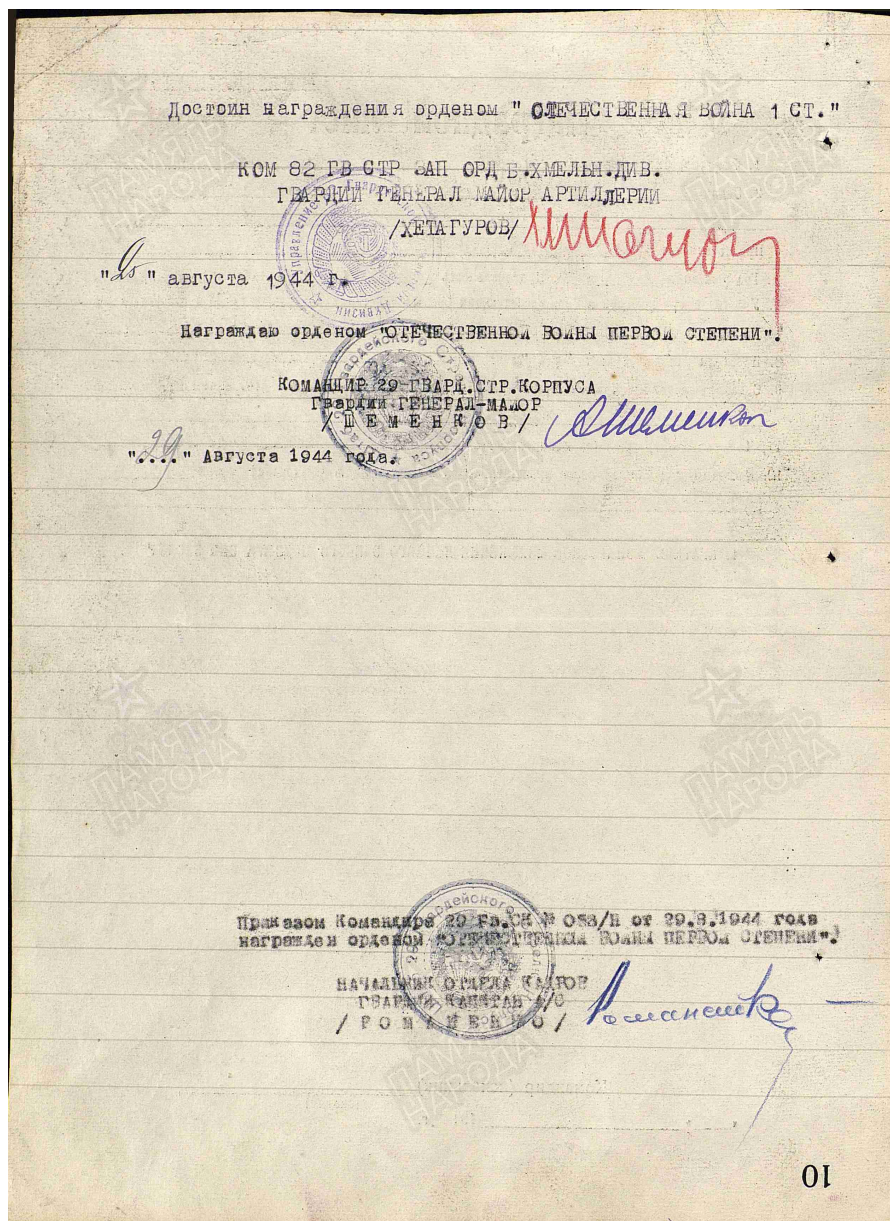 Достоин награждения орденом " ОТЕЧЕСТВЕННАЯ ВОЙНА 1 СТ."
КОМ 82 ГВ СТР ЗАП ОРД Б.ХМЕЛЬН.ДИВ.
ГВАРДИИ ГЕНЕРАЛ МАЙОР АРТИЛЛЕРИИ
/ХЕТАГУРОВ/
" 25 " августа 1944 г.
Награждаю орденом "ОТЕЧЕСТВЕННОЙ ВОЙНЫ ПЕРВОЙ СТЕПЕНИ".
КОМАНДИР 29 ГВАРД.СТР.КОРПУСА
Гвардии ГЕНЕРАЛ-МАЙОР
/ ШЕМЕНКОВ /
"29" Августа 1944 года.
Приказом Командира 29 Гв.СК № 058/Н от 29.8.1944 года
награжден орденом "ОТЕЧЕСТВЕННОЙ ВОЙНЫ ПЕРВОЙ СТЕПЕНИ".
НАЧАЛЬНИК ОТДЕЛА КАДРОВ
ГВАРДИИ КАПИТАН А/С
/ РОМАНЕНКО /
ПАМЯТЬ НАРОДА
10